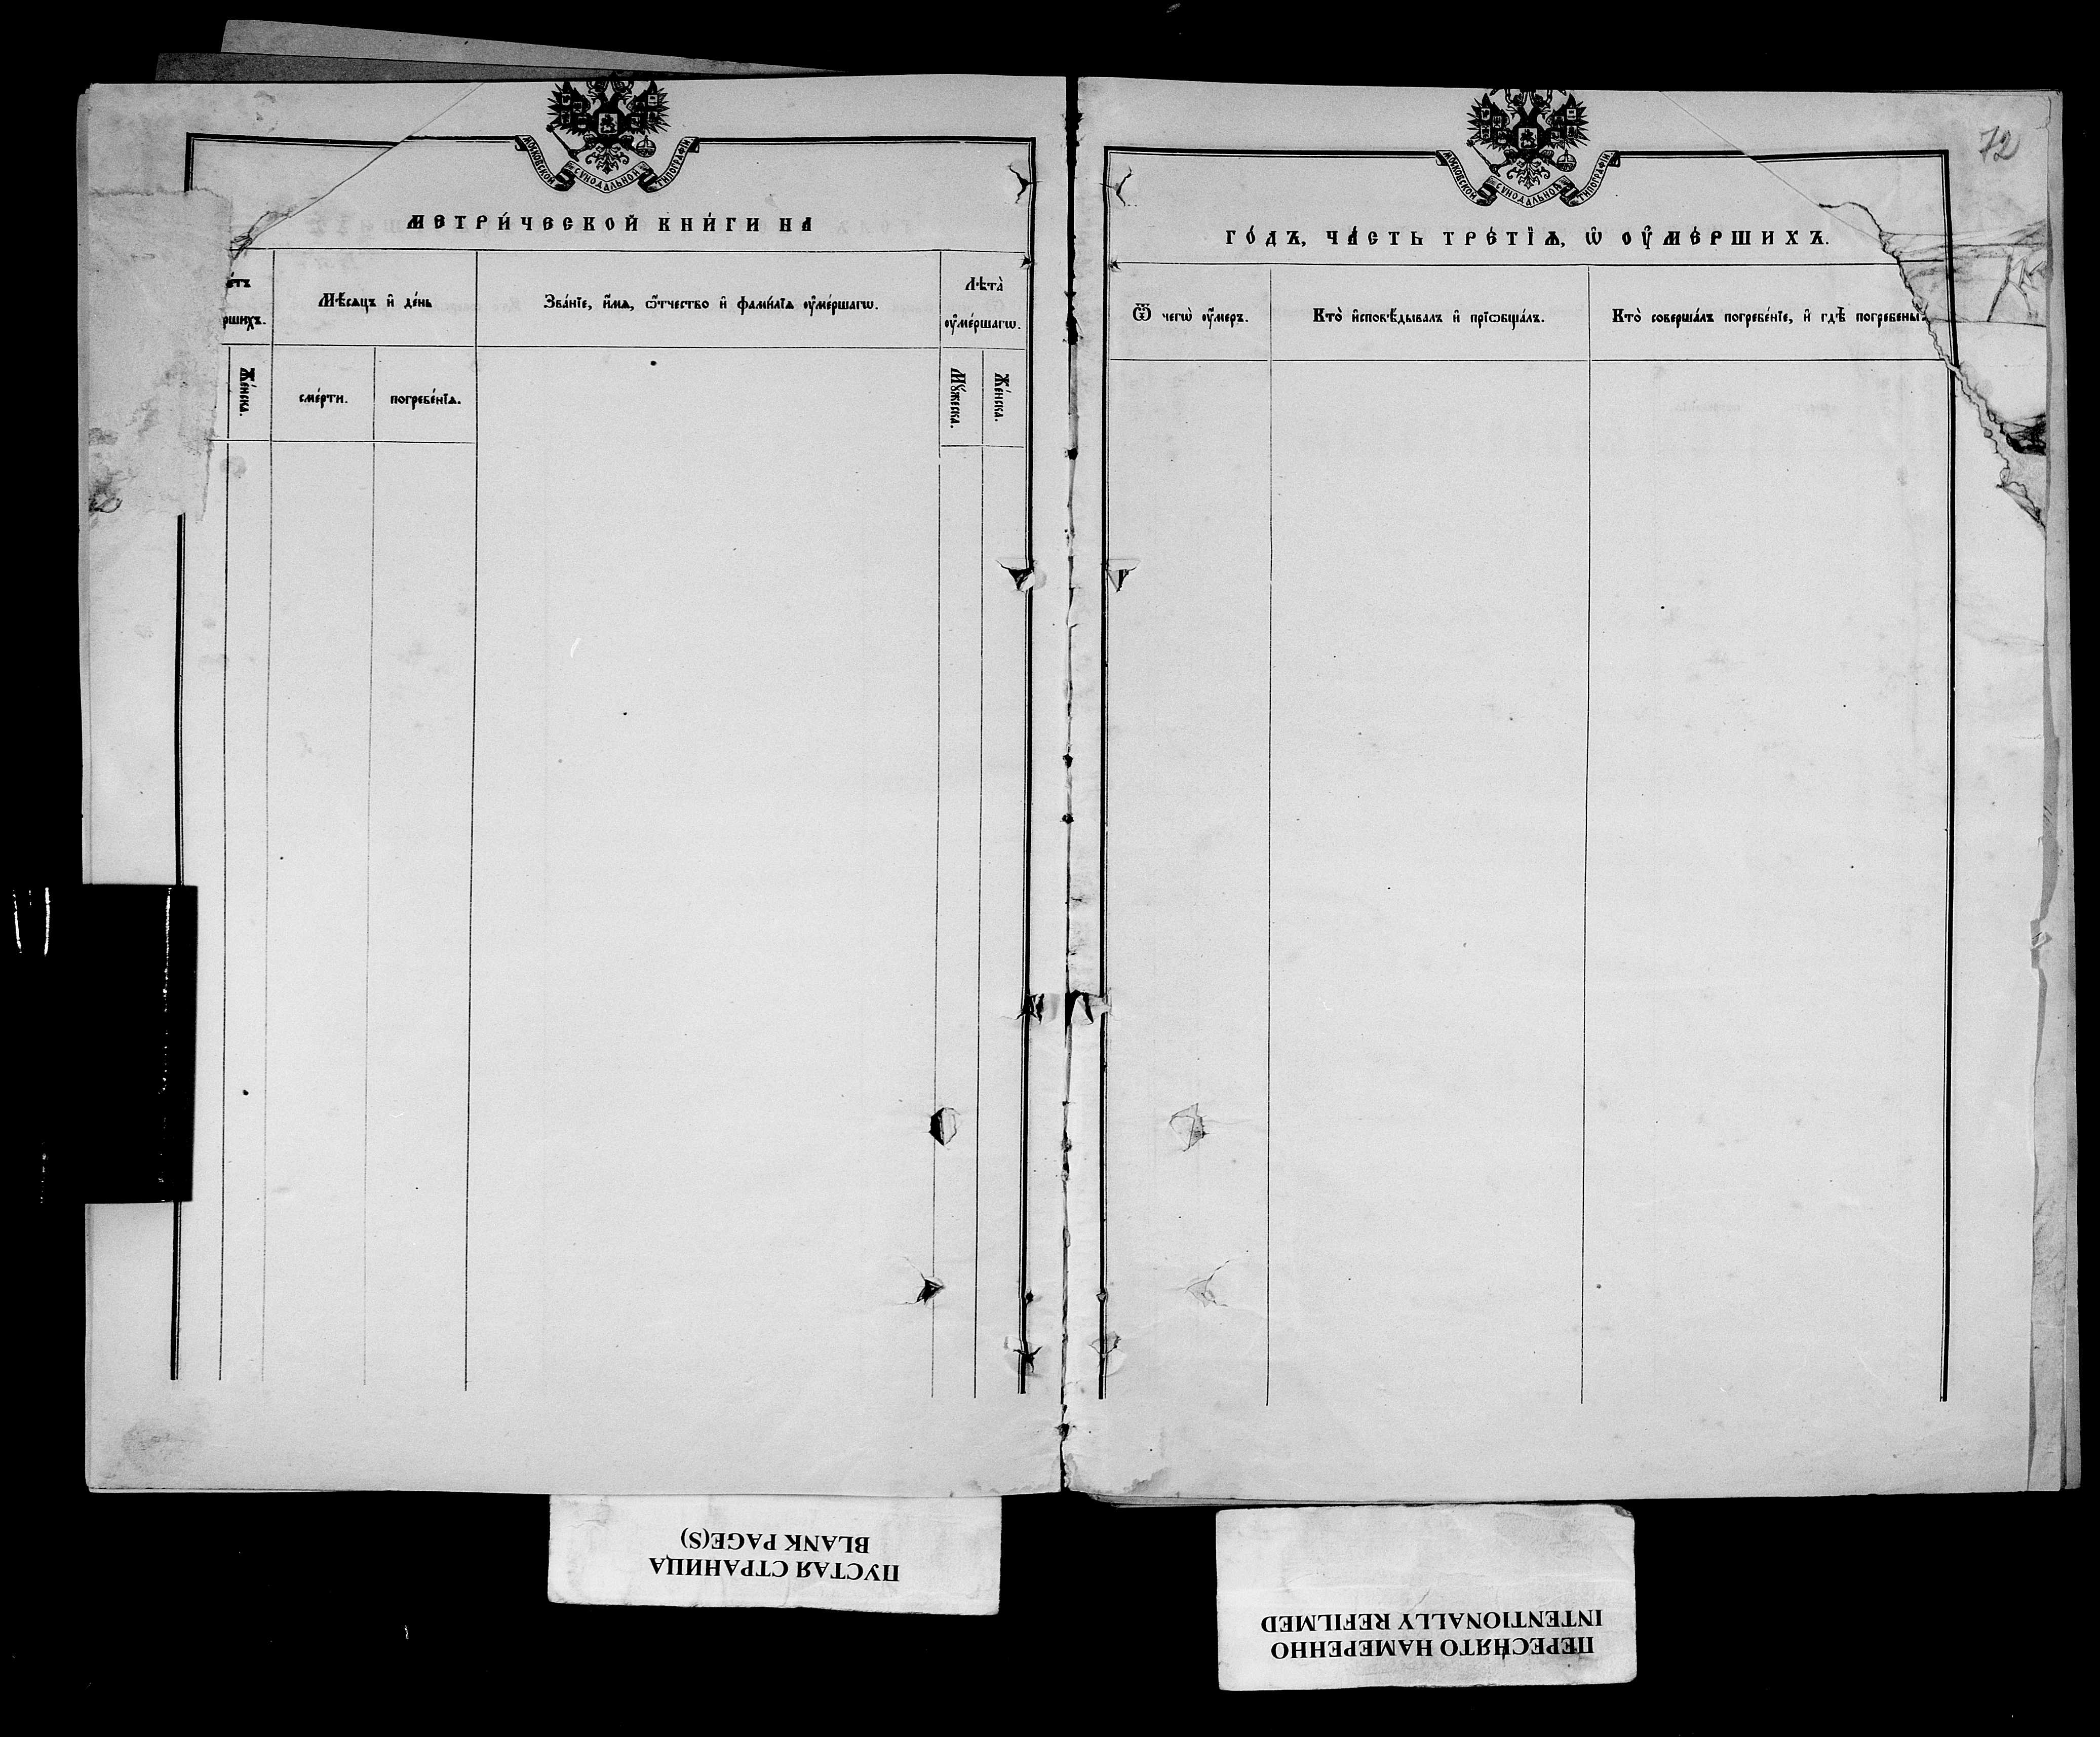 МОСКОВСКОЙ СУНОДАЛЬНОЙ ТИПОГРАФІИ
МЕТРИ́ЧЕСКОЙ КНИ́ГИ НА
е́тъ
ршихъ.
Же́нска.
Мѣ́сяцъ и҆ де́нь
сме́рти.
погребе́нїѧ.
Зва́нїе, и҆́мѧ, ѻ҆́тчество и҆ фами́лїѧ ѹ҆ме́ршагѡ.
Лѣта̀
ѹ҆ме́ршагѡ.
Мꙋ́жеска.
Же́нска.
72
МОСКОВСКОЙ СУНОДАЛЬНОЙ ТИПОГРАФІИ
ГО́ДЪ, ЧА́СТЬ ТРЕ́ТЇѦ, Ѡ҆ ОУ҆МЕ́РШИХЪ.
Ѿ чегѡ̀ ѹ҆́меръ.
Кто̀ и҆сповѣ́дывалъ и҆ прїѡбща́лъ.
Кто̀ соверша́лъ погребе́нїе, и҆ гдѣ̀ погребены̀.
ПУСТАЯ СТРАНИЦА
BLANK PAGE(S)
ПЕРЕСНЯТО НАМЕРЕННО
INTENTIONALLY REFILMED